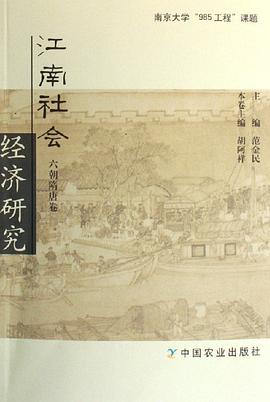 南京大学“985工程”课题
江南社会
经济研究
六朝隋唐卷
主编 范金民
本卷主编 胡阿祥
中国农业出版社